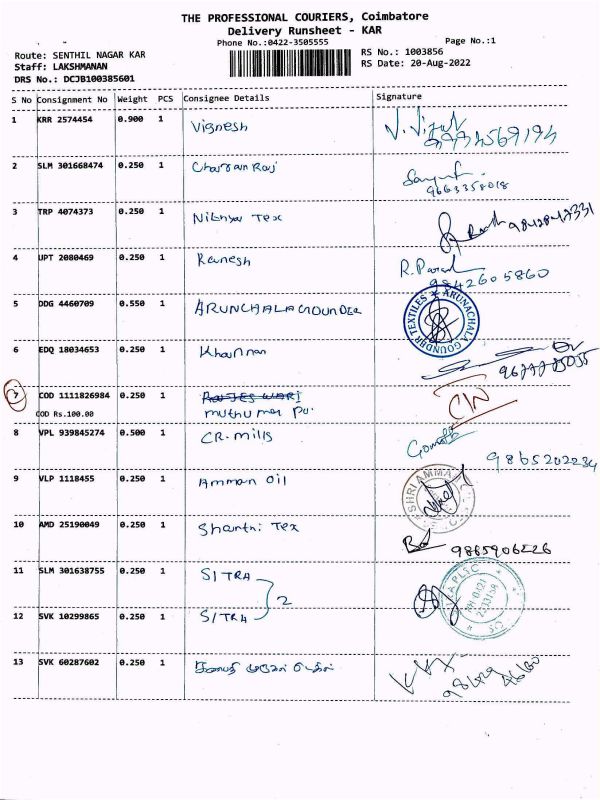 THE PROFESSIONAL COURIERS, Coimbatore
Delivery Runsheet - KAR
Phone No.:0422-3505555 Page No.:1
Route: SENTHIL NAGAR KAR RS No.: 1003856
Staff: LAKSHMANAN RS Date: 20-Aug-2022
DRS No.: DCJB100385601
S No Consignment No Weight PCS Consignee Details Signature
1 KRR 2574454 0.900 1 Vignesh
2 SLM 301668474 0.250 1 Charran Raj
9663358018
3 TRP 4074373 0.250 1 Nithya Tex
4 UPT 2080469 0.250 1 Ranesh
9842605860
5 DDG 4460709 0.550 1 ARUNCHALAGOUNDER ARUNACHALA GOUNDAR TEXTILES
6 EDQ 18034653 0.250 1 Khannan
7 COD 1111826984 0.250 1
COD Rs.100.00 muthumar pu.
8 VPL 939845274 0.500 1 CR. mills
9865202234
9 VLP 1118455 0.250 1 Amman oil SHRI AMMA
10 AMD 25190049 0.250 1 Shanthi Tex
9865906226
11 SLM 301638755 0.250 1 SITRA
2
12 SVK 10299865 0.250 1 SITRA
13 SVK 60287602 0.250 1